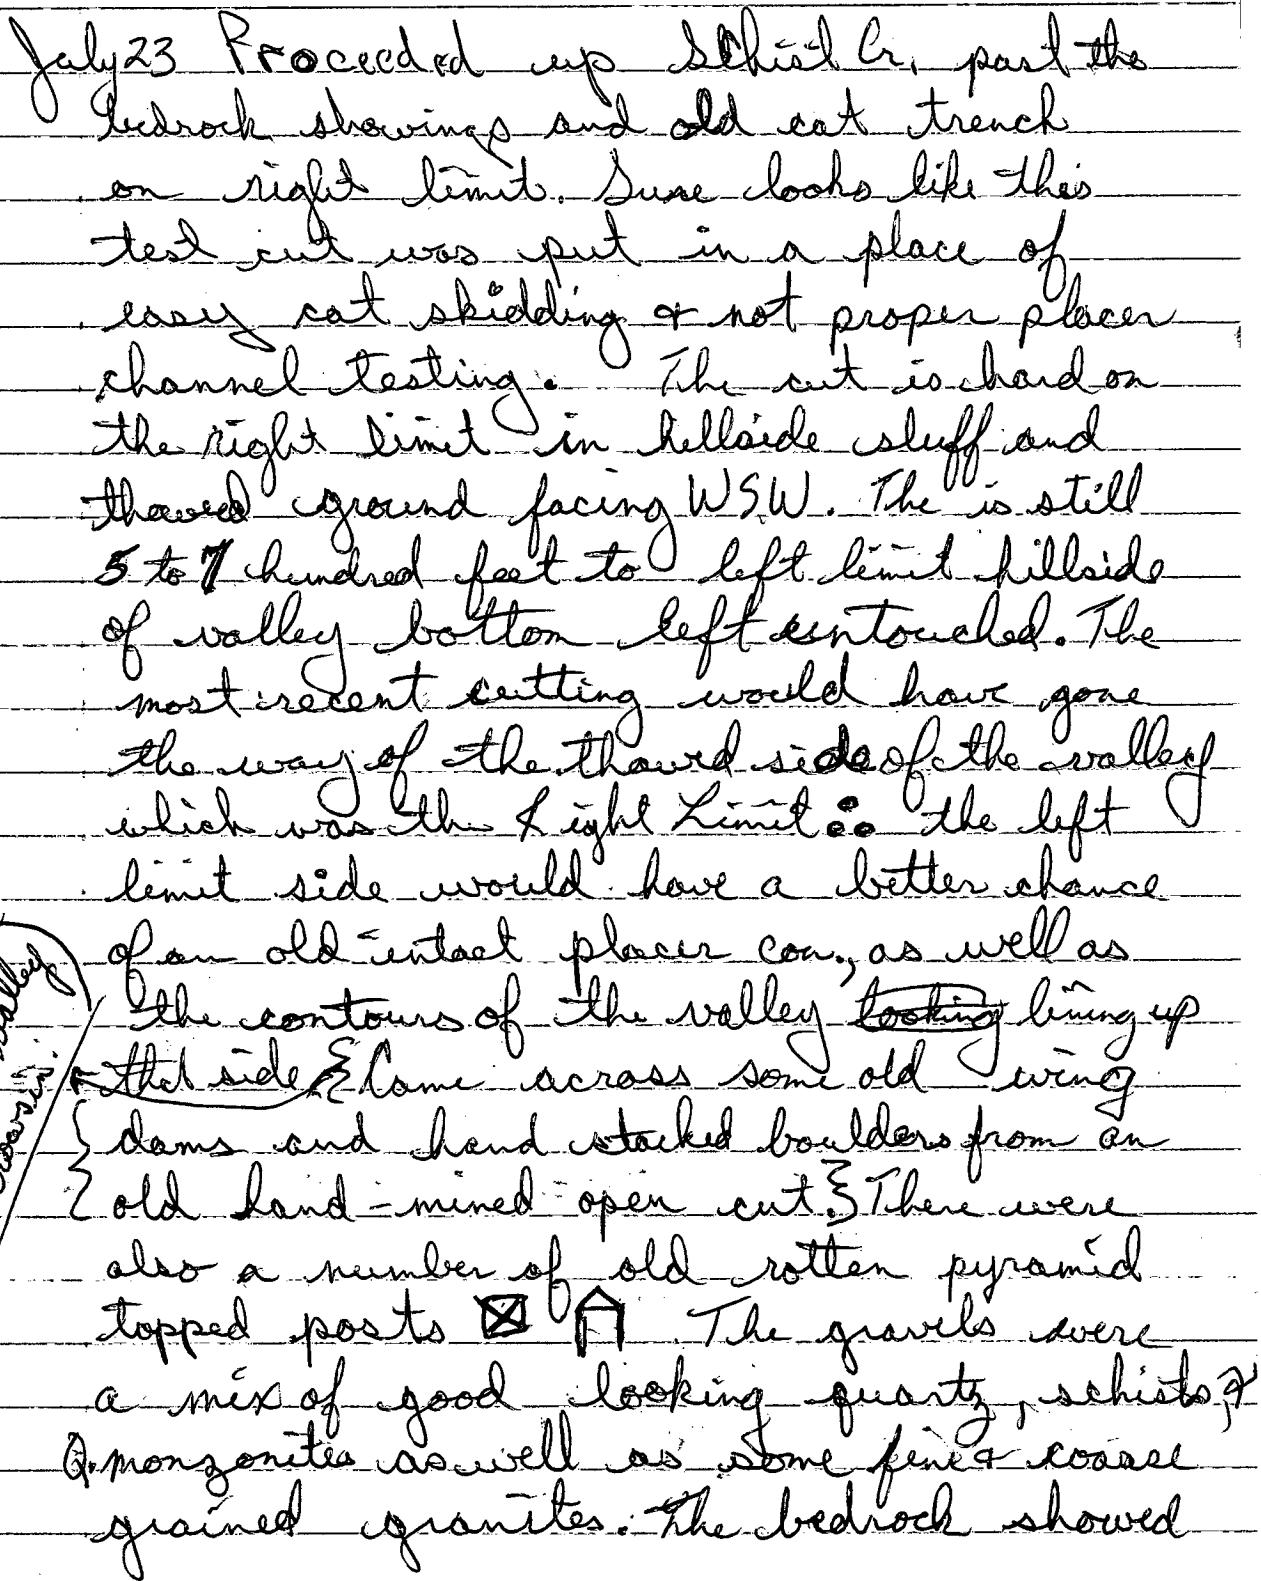 July 23 Proceeded up Schist Cr. past the
bedrock showings and old cat trench
on right limit. Sure looks like this
test cut was put in a place of
easy cat skidding & not proper placer
channel testing. The cut is hard on
the right limit in hillside sluff and
thawed ground facing WSW. The is still
5 to 7 hundred feet to left limit hillside
of valley bottom left untouched. The
most recent cutting would have gone
the way of the thawed side of the valley
which was the Right Limit ∴ the left
limit side would have a better chance
of an old intact placer con., as well as
the contours of the valley looking lining up
that side. {Came across some old wing
dams and hand stacked boulders from an
old hand-mined open cut.} There were
also a number of old rotten pyramid
topped posts The gravels were
a mix of good looking quartz, schists, &
Q. monzonites as well as some fine & coarse
grained granites. The bedrock showed
valley